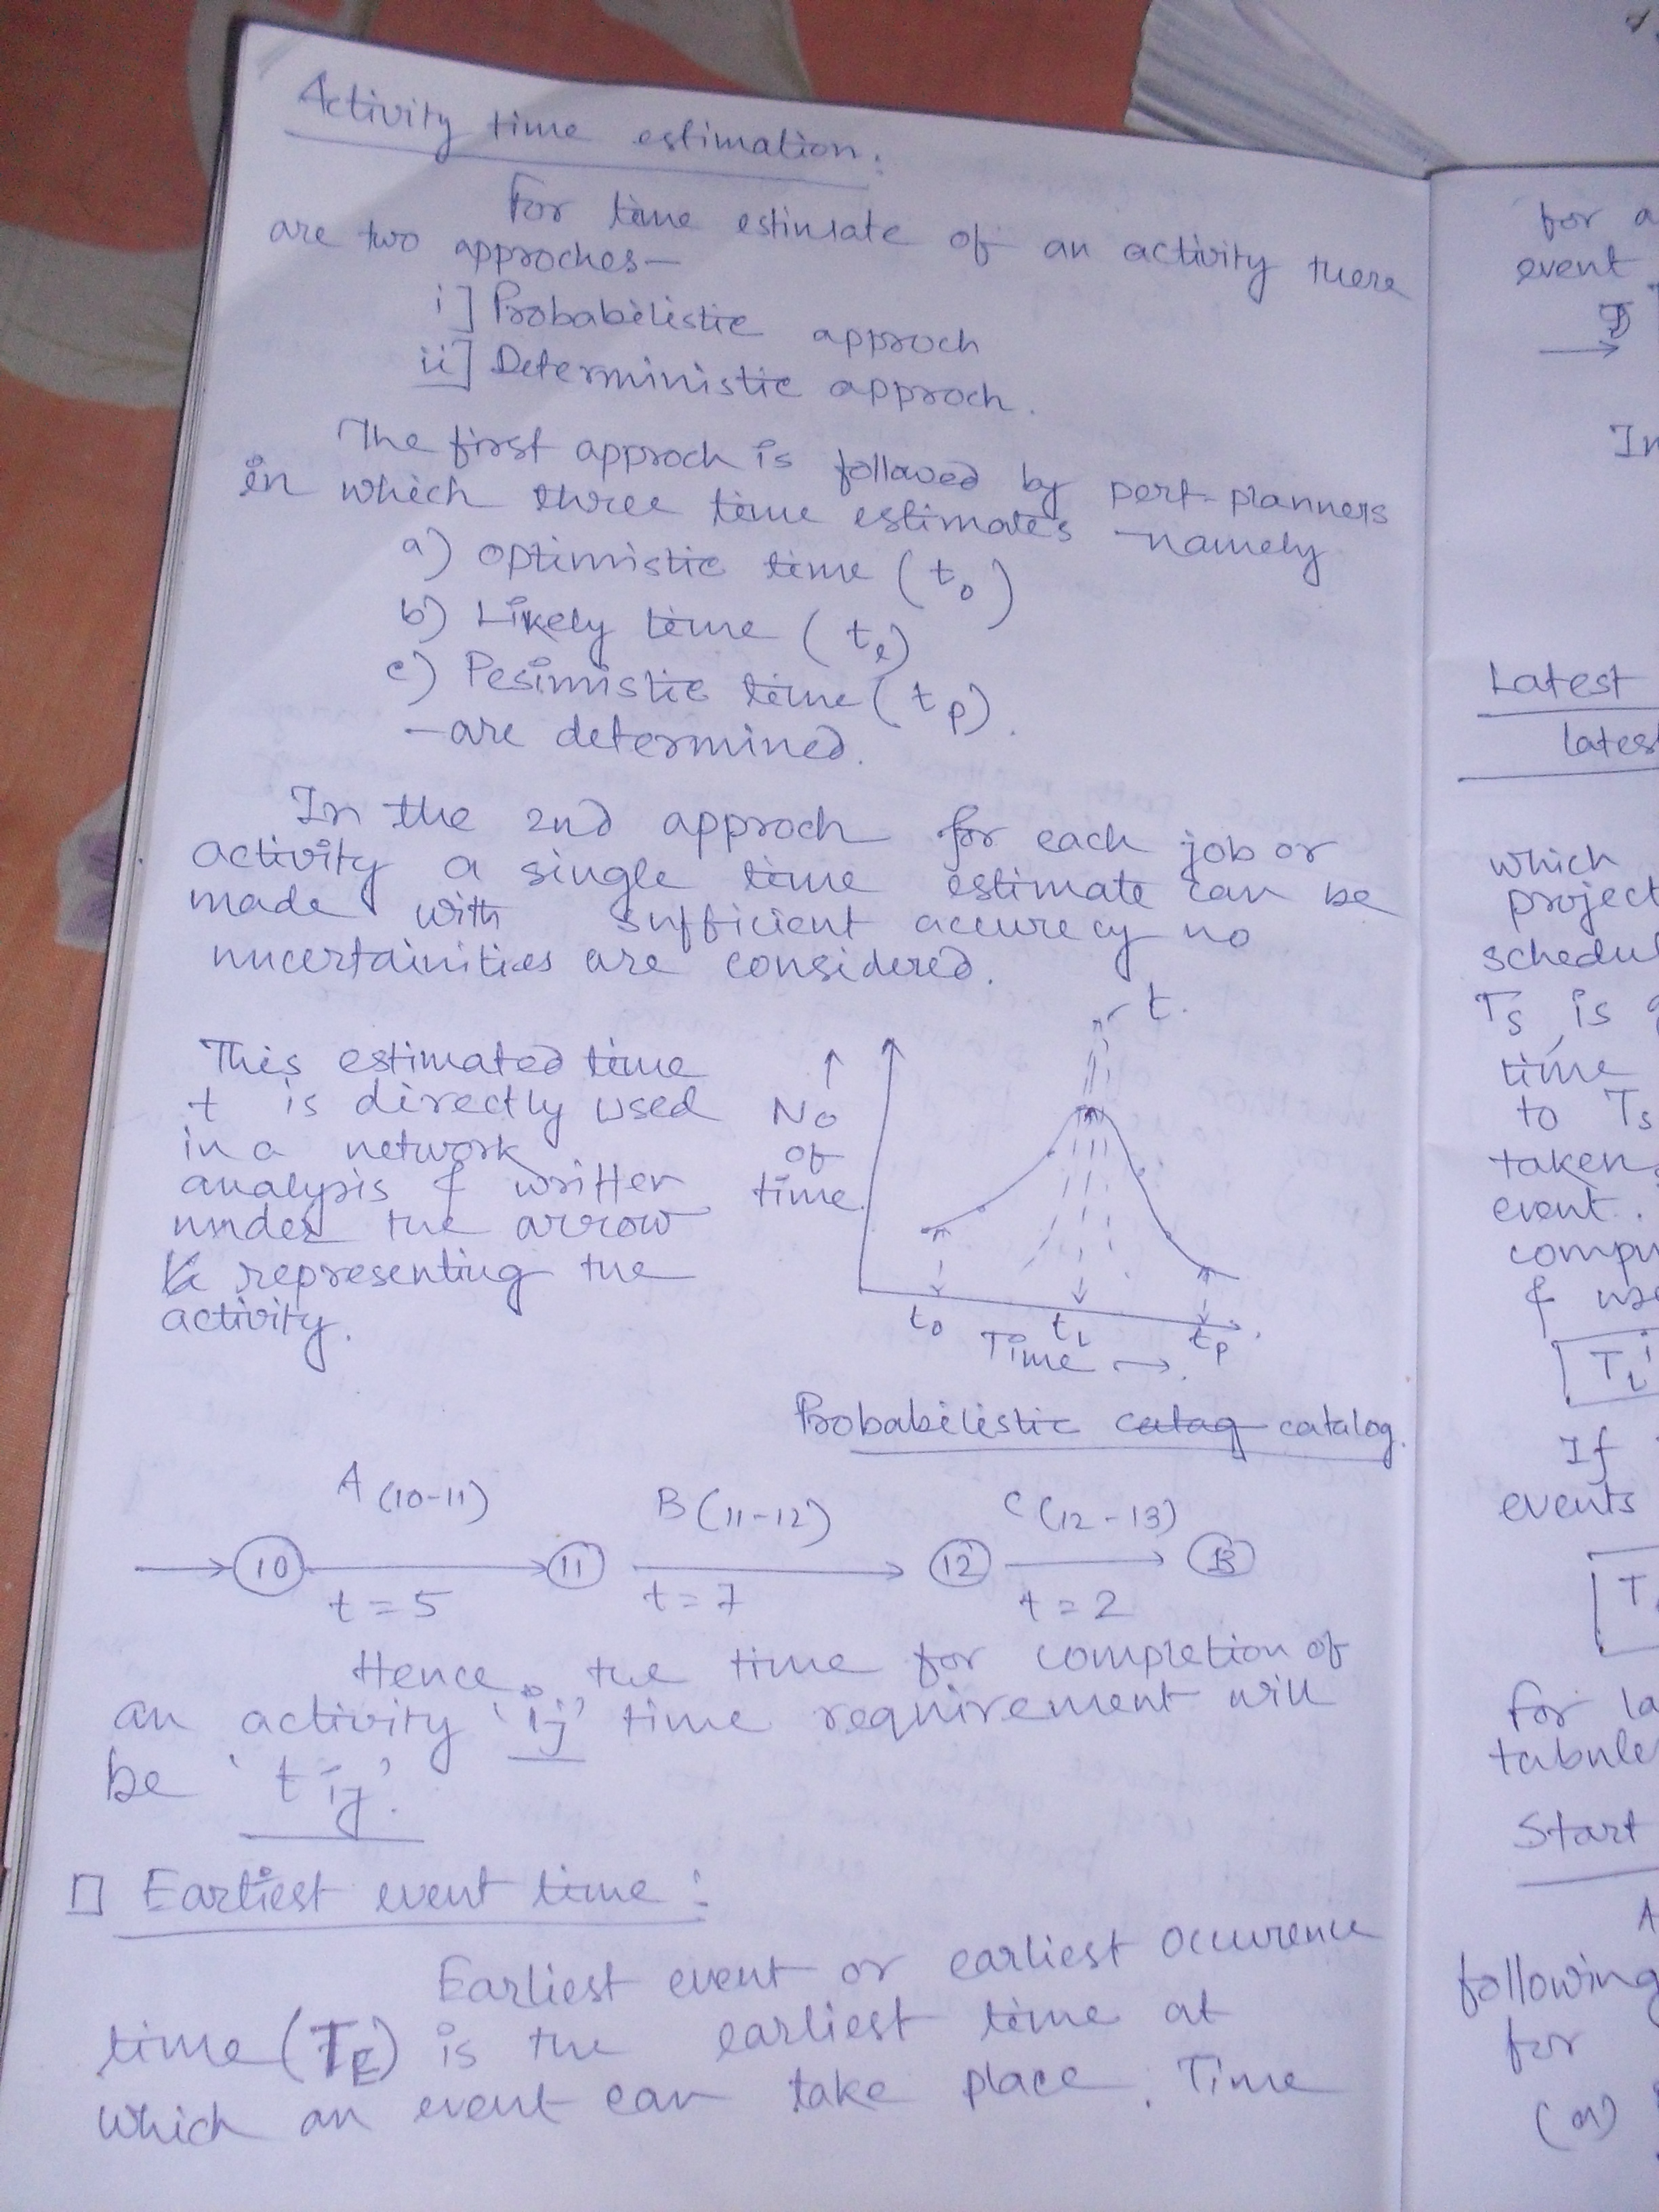 Activity time estimation:
For time estimate of an activity there
are two approches-
i] Probabilistic approch
ii] Deterministic approch.
The first approch is followed by pert-planners
in which three time estimates namely
a) optimistic time (to)
b) Likely time (tl)
c) Pesimistic time (tp).
-are determined.
In the 2nd approch for each job or
activity a single time estimate can be
made with sufficient accurecy no
uncertainities are considered.
This estimated time
t is directly used
in a network
analysis & written
under the arrow
representing the
activity.
↑
No
of
time.
t.
to tL tp
Time →.
Probabilistic catag catalog.
A (10-11) B (11-12) C (12-13)
10 11 12 13
t=5 t=7 t=2
Hence, the time for completion of
an activity 'ij' time requirement will
be 't ij'.
Earliest event time:
Earliest event or earliest occurence
time (TE) is the earliest time at
which an event can take place. Time
for a
event
In
Latest
latest
which
project
schedul
Ts, is
time
to Ts
taken
event.
compu
& use
TL i
If
events
T
for la
tabule
Start
A
following
for
(a)